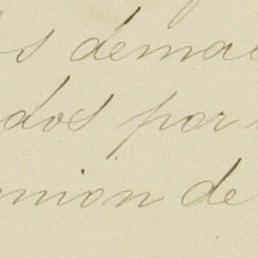 s dema
dos por
nion de